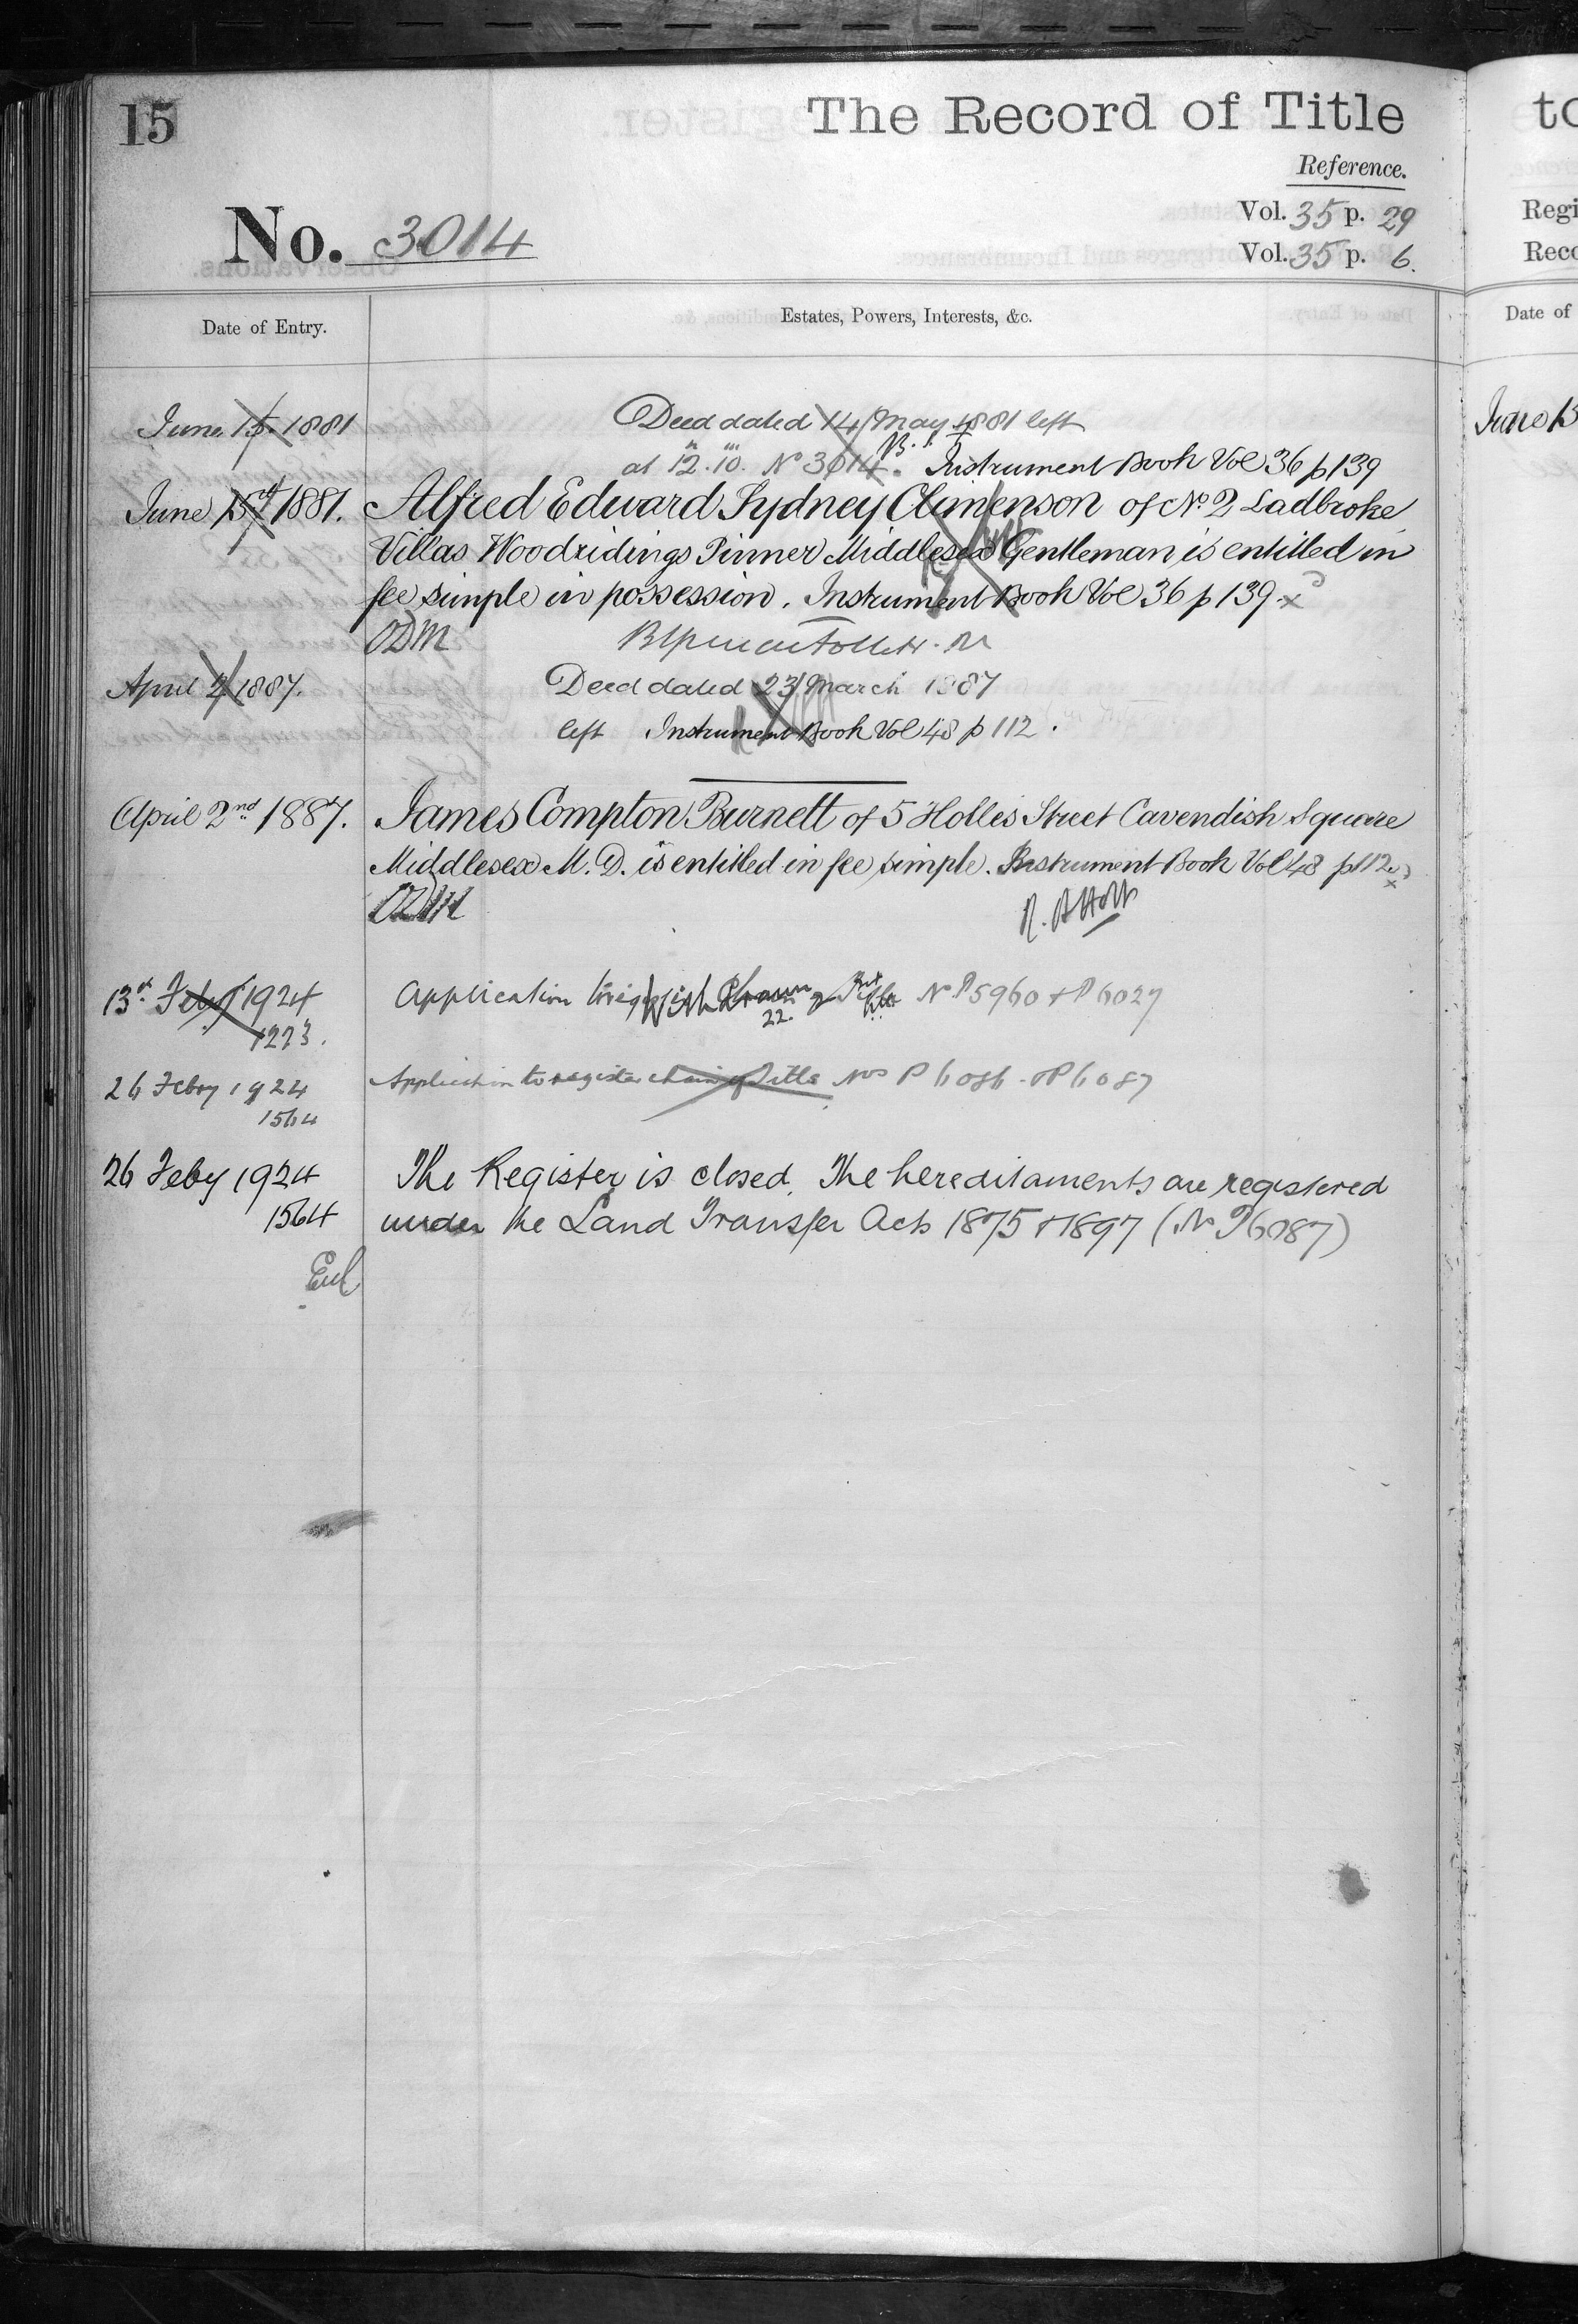 15
The Record of Title
Reference.
No. 3014
Vol. 35 p. 29
Vol. 35 p. 6.
Date of Entry.
Estates, Powers, Interests, &c.
June 15. 1881
Deed dated 14 May 1881 left
at 12.10. No 3014. Instrument Book Vol 36 p 139
June 15th 1881.
Alfred Edward Sydney Climenson of No. 2 Ladbroke
Villas Woodridings Pinner Middlesex Gentleman is entitled in
fee simple in possession. Instrument Book Vol 36 p 139 x
ODM
April 2 1887.
Deed dated 23 March 1887
left Instrument Book Vol 48 p 112.
April 2nd 1887.
James Compton Burnett of 5 Holles Street Cavendish Square
Middlesex M.D. is entitled in fee simple. Instrument Book Vol 48 p 112 x
ODM
13th Feby 1924
Application No P5960 + P6027
22.
1223.
26 Febry 1924
Application to register chain of Title Nos P 6086 - P 6087
1564
26 Feby 1924
The Register is closed. The hereditaments are registered
1564
under the Land Transfer Acts 1875 + 1897 (No P6087)
to
Regi
Reco
Date of
June 15